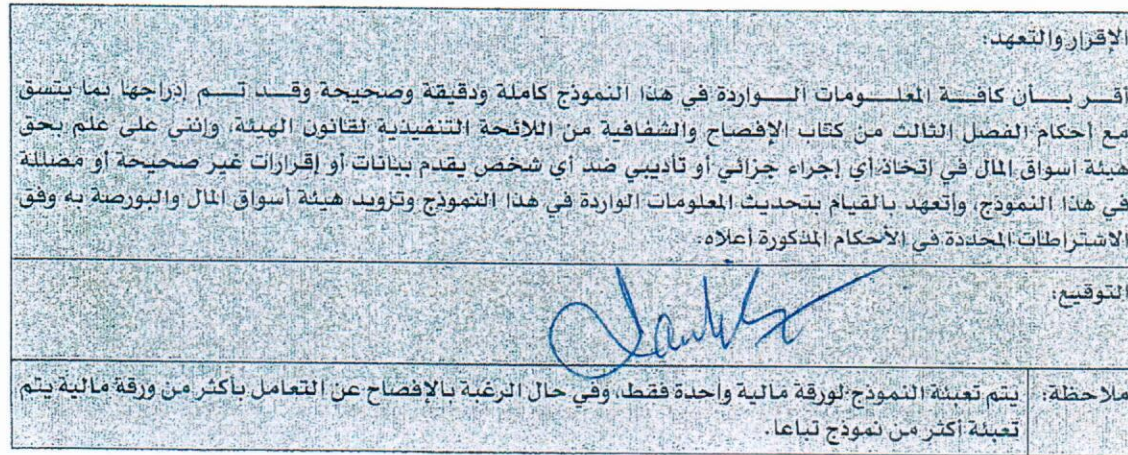 الإقرار والتعهد:
أقـر بــأن كافــة المعلــومات الــواردة في هذا النموذج كاملة ودقيقة وصحيحة وقــد تــم إدراجها بما يتسق
مع أحكام الفصل الثالث من كتاب الإفصاح والشفافية من اللائحة التنفيذية لقانون الهيئة، وإنني على علم بحق
هيئة اسواق المال في إتخاذ أي إجراء جزائي أو تأديبي ضد أي شخص يقدم بيانات أو إقرارات غير صحيحة أو مضللة
في هذا النموذج، وأتعهد بالقيام بتحديث المعلومات الواردة في هذا النموذج وتزويد هيئة أسواق المال والبورصة به وفق
الاشتراطات المحددة في الأحكام المذكورة أعلاه.
التوقيع:
ملاحظة: يتم تعبئة النموذج لورقة مالية واحدة فقط، وفي حال الرغبة بالإفصاح عن التعامل بأكثر من ورقة مالية يتم
تعبئة أكثر من نموذج تباعا.